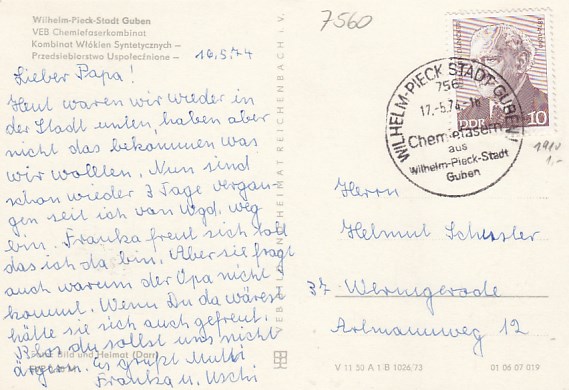 Wilhelm-Pieck-Stadt Guben
VEB Chemiefaserkombinat
Kombinat Włókien Syntetycznych –
Przedsiebiorstwo Uspołecznione –
16.5.74
Lieber Papa!
Heut waren wir wieder in
der Stadt unten, haben aber
nicht das bekommen was
wir wollten. Nun sind
schon wieder 3 Tage vergan-
gen seit ich von Wgd. weg
bin. Franka freut sich toll
das ich da bin. Aber sie fragt
auch warum der Opa nicht
kommt. Wenn Du da wärest
hätte sie sich auch gefreut.
du sollst uns nicht
ärgern. Es grüßt Mutti
Franka u. Uschi
Bild und Heimat
VEB BILD UND HEIMAT REICHENBACH i. V.
7560
WILHELM-PIECK-STADT GUBEN 1
756
17.-5.74-16
Chemiefasern
aus
Wilhelm-Pieck-Stadt
Guben
DDR 10
1910
1.-
Herrn
Helmut Schuster
37 Wernigerode
Arlmannweg 12
V 11 50 A 1 B 1026/73
01 06 07 019